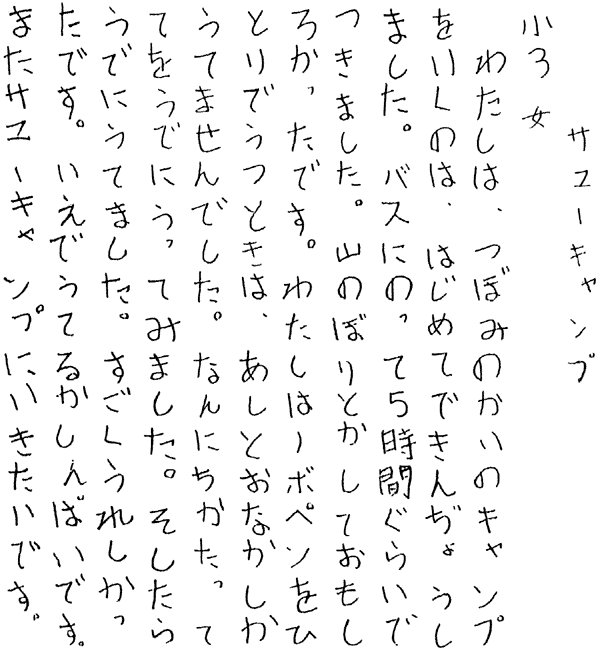 サユーキャンプ
小3 女
わたしは、つぼみのかいのキャンプ
をいくのは、はじめてできんぢょうし
ました。バスにのって5時間ぐらいで
つきました。山のぼりとかしておもし
ろかったです。わたしはーボペンをひ
とりでうつときは、あしとおなかしか
うてませんでした。なんにちかたって
てをうでにうってみました。そしたら
うでにうてました。すごくうれしかっ
たです。いえでうてるかしんぱいです。
またサユーキャンプにいきたいです。